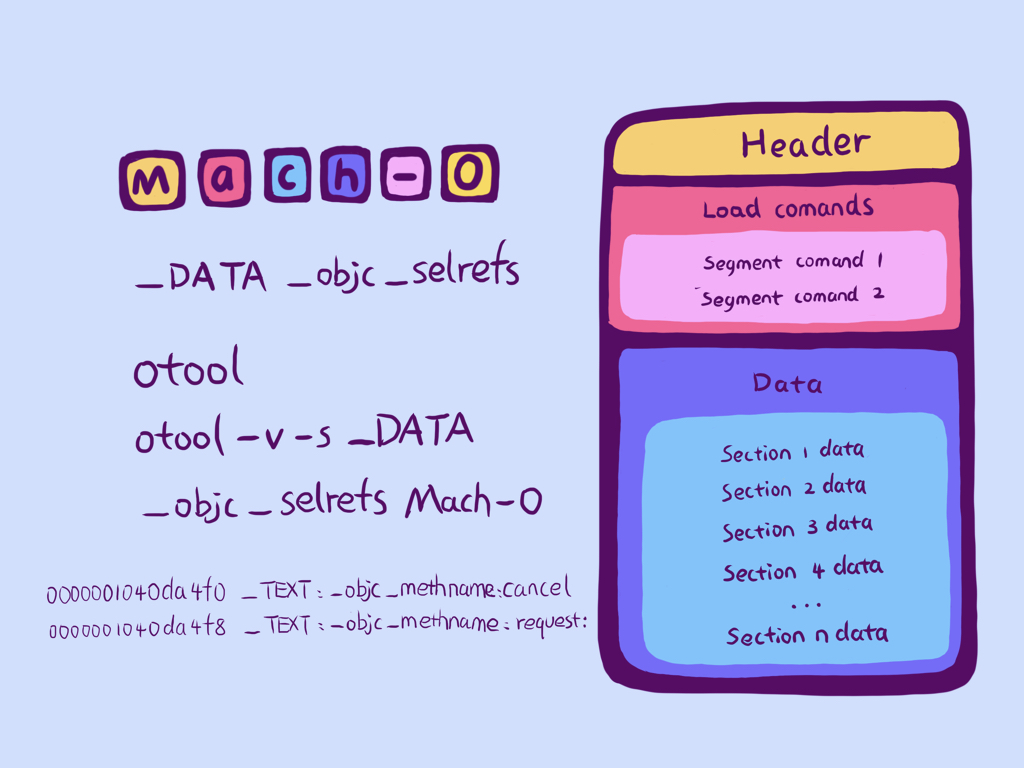 Mach-O
_DATA _objc_selrefs
otool
otool -v -s _DATA
_objc_selrefs Mach-O
0000001040da4f0 _TEXT:_objc_methname:cancel
0000001040da4f8 _TEXT:_objc_methname:request:
Header
Load comands
Segment comand 1
Segment comand 2
Data
Section 1 data
Section 2 data
Section 3 data
Section 4 data
...
Section n data